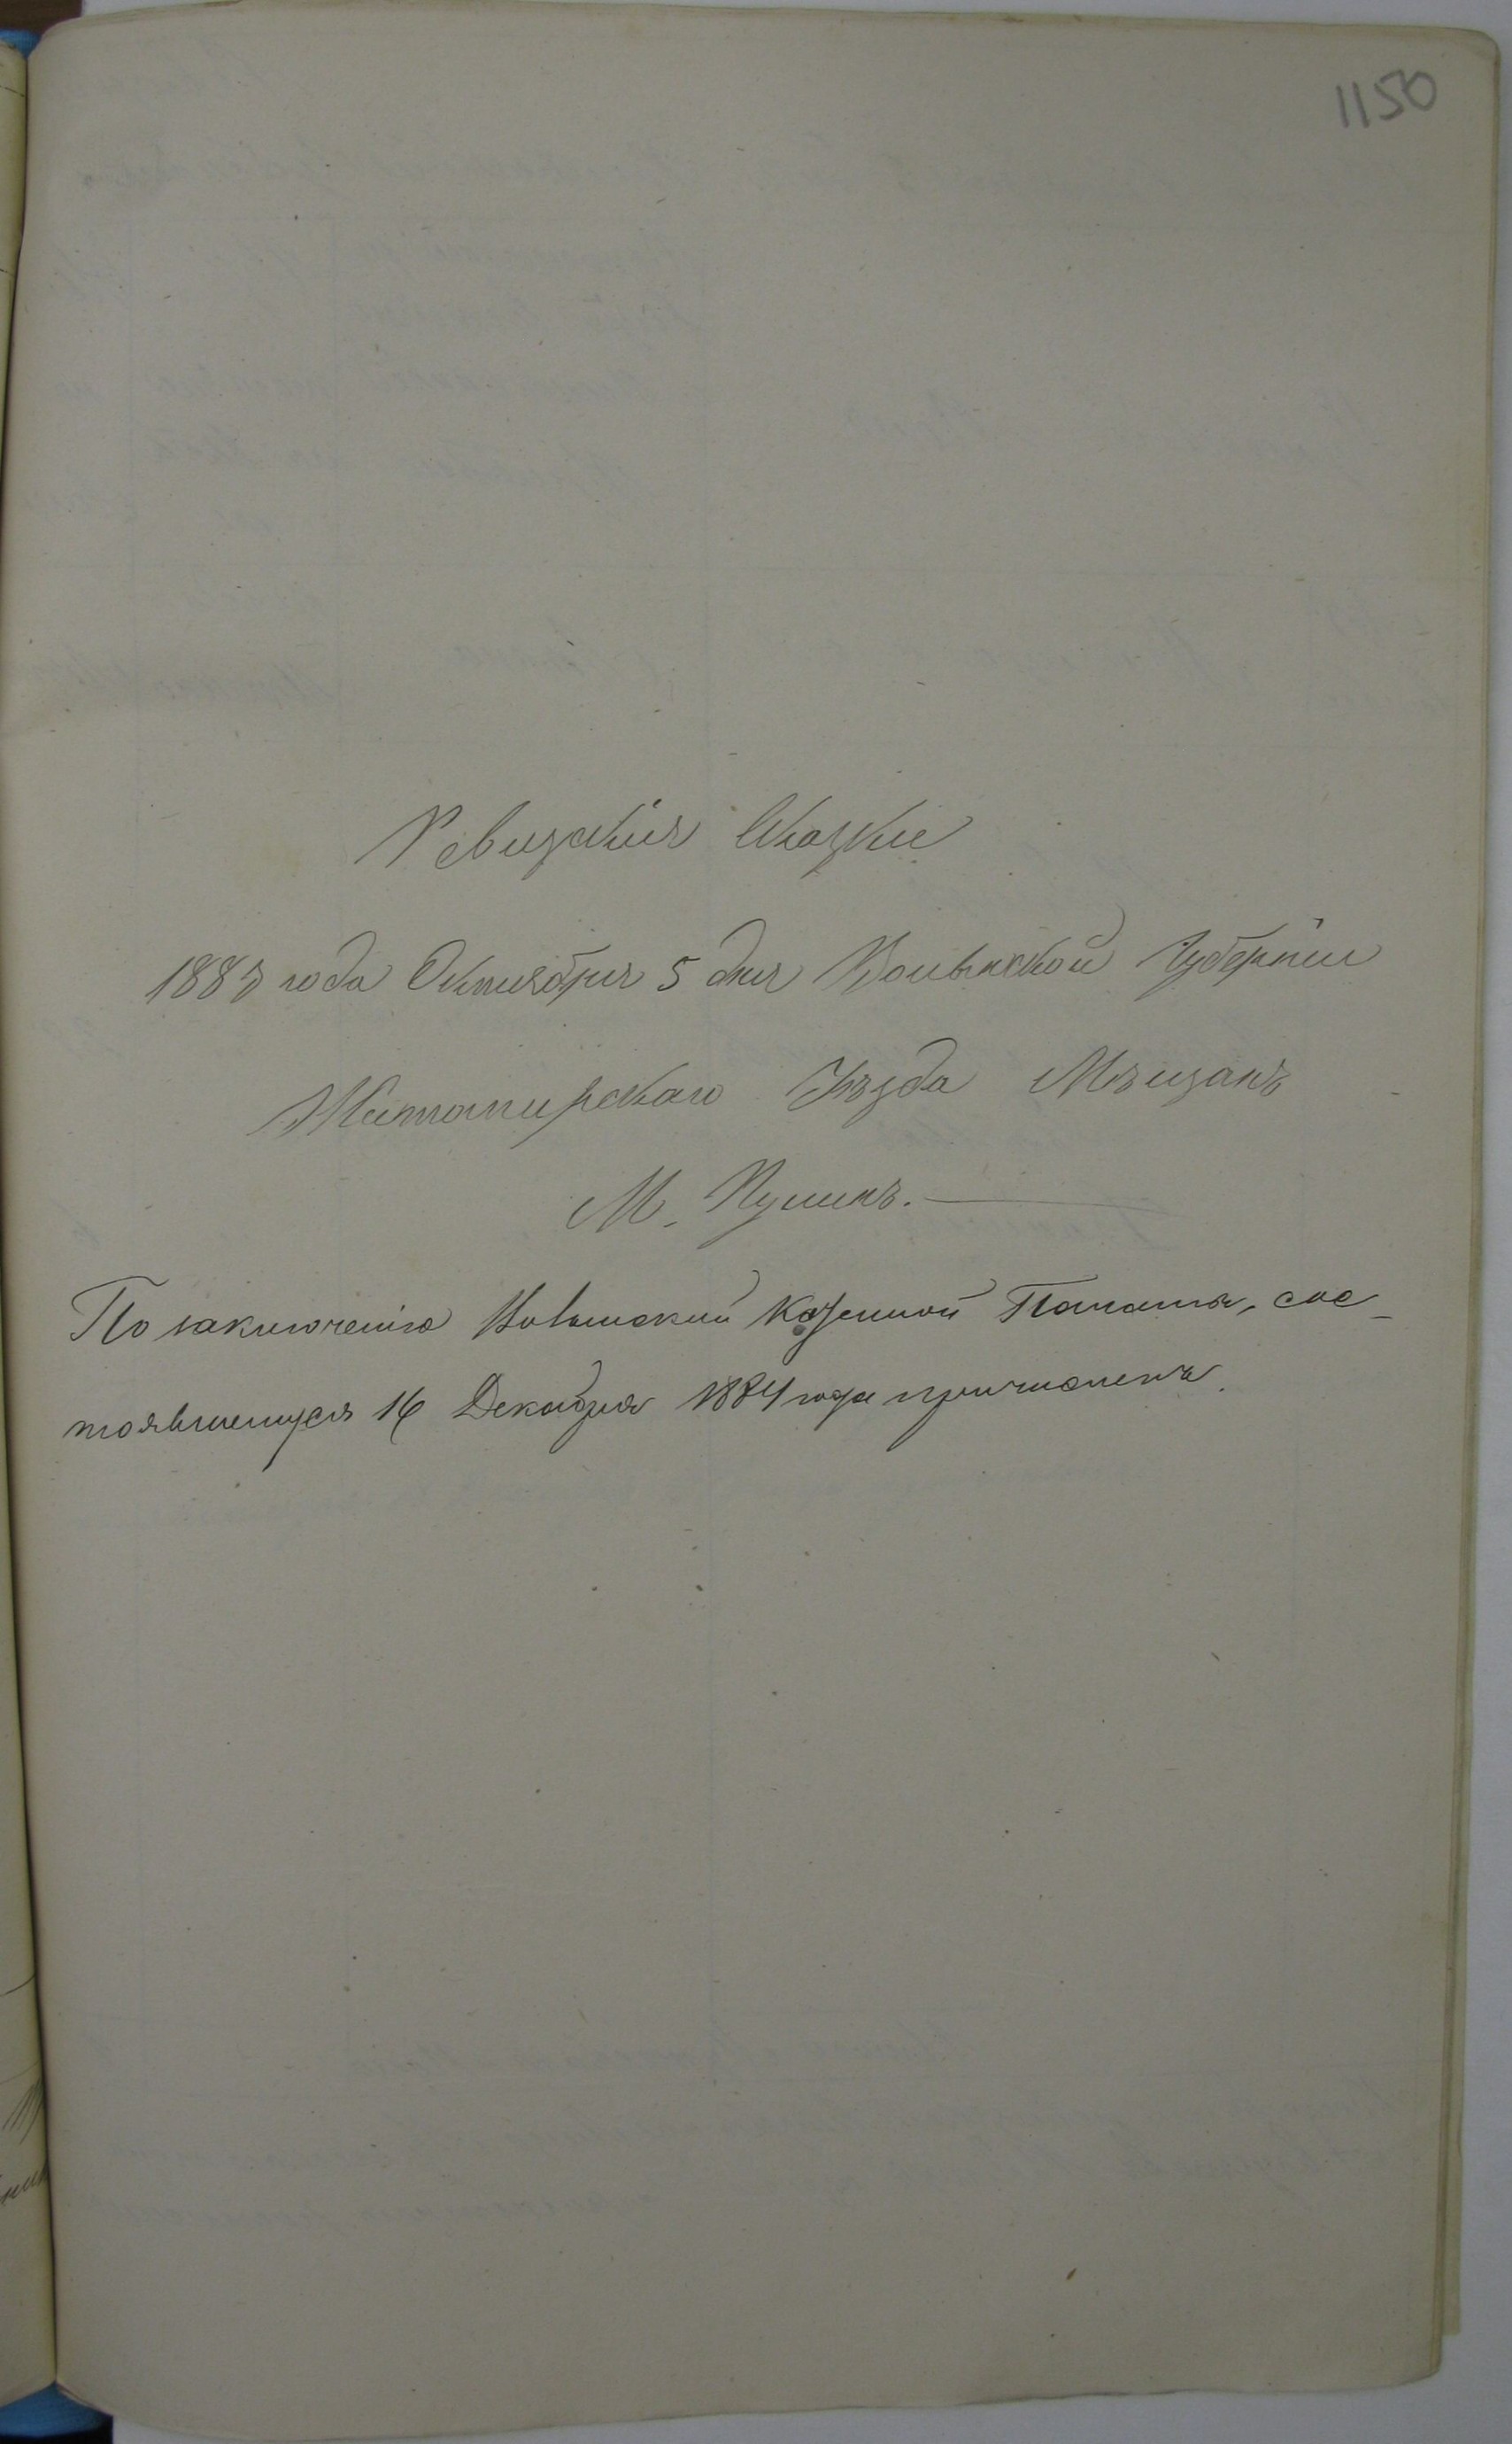 1150
Ревизскія Сказки
1883 года Октября 5 дня Волынской Губерніи
Житомирскаго Уѣзда Мѣщанъ
М. Пулинъ.
По заключенію Волынский Казенной Палаты, сос-
тоявшемуся 16 Декабря 1884 года причисленъ.